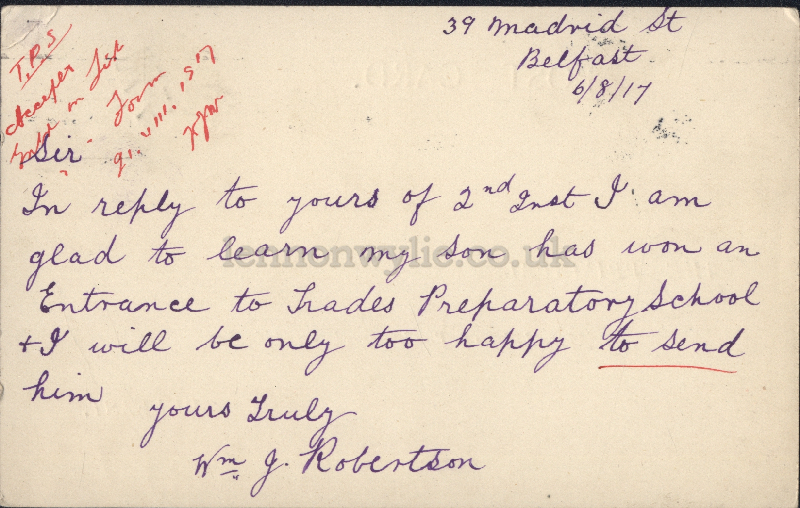 39 Madrid St
Belfast
6/8/17
T.P.S
Accepts
on List
Form
VIII. 1917
Sir
In reply to yours of 2nd Inst I am
glad to learn my son has won an
Entrance to Trades Preparatory School
+ I will be only too happy to send
him
yours Truly
Wm J. Robertson
lennonwylie.co.uk